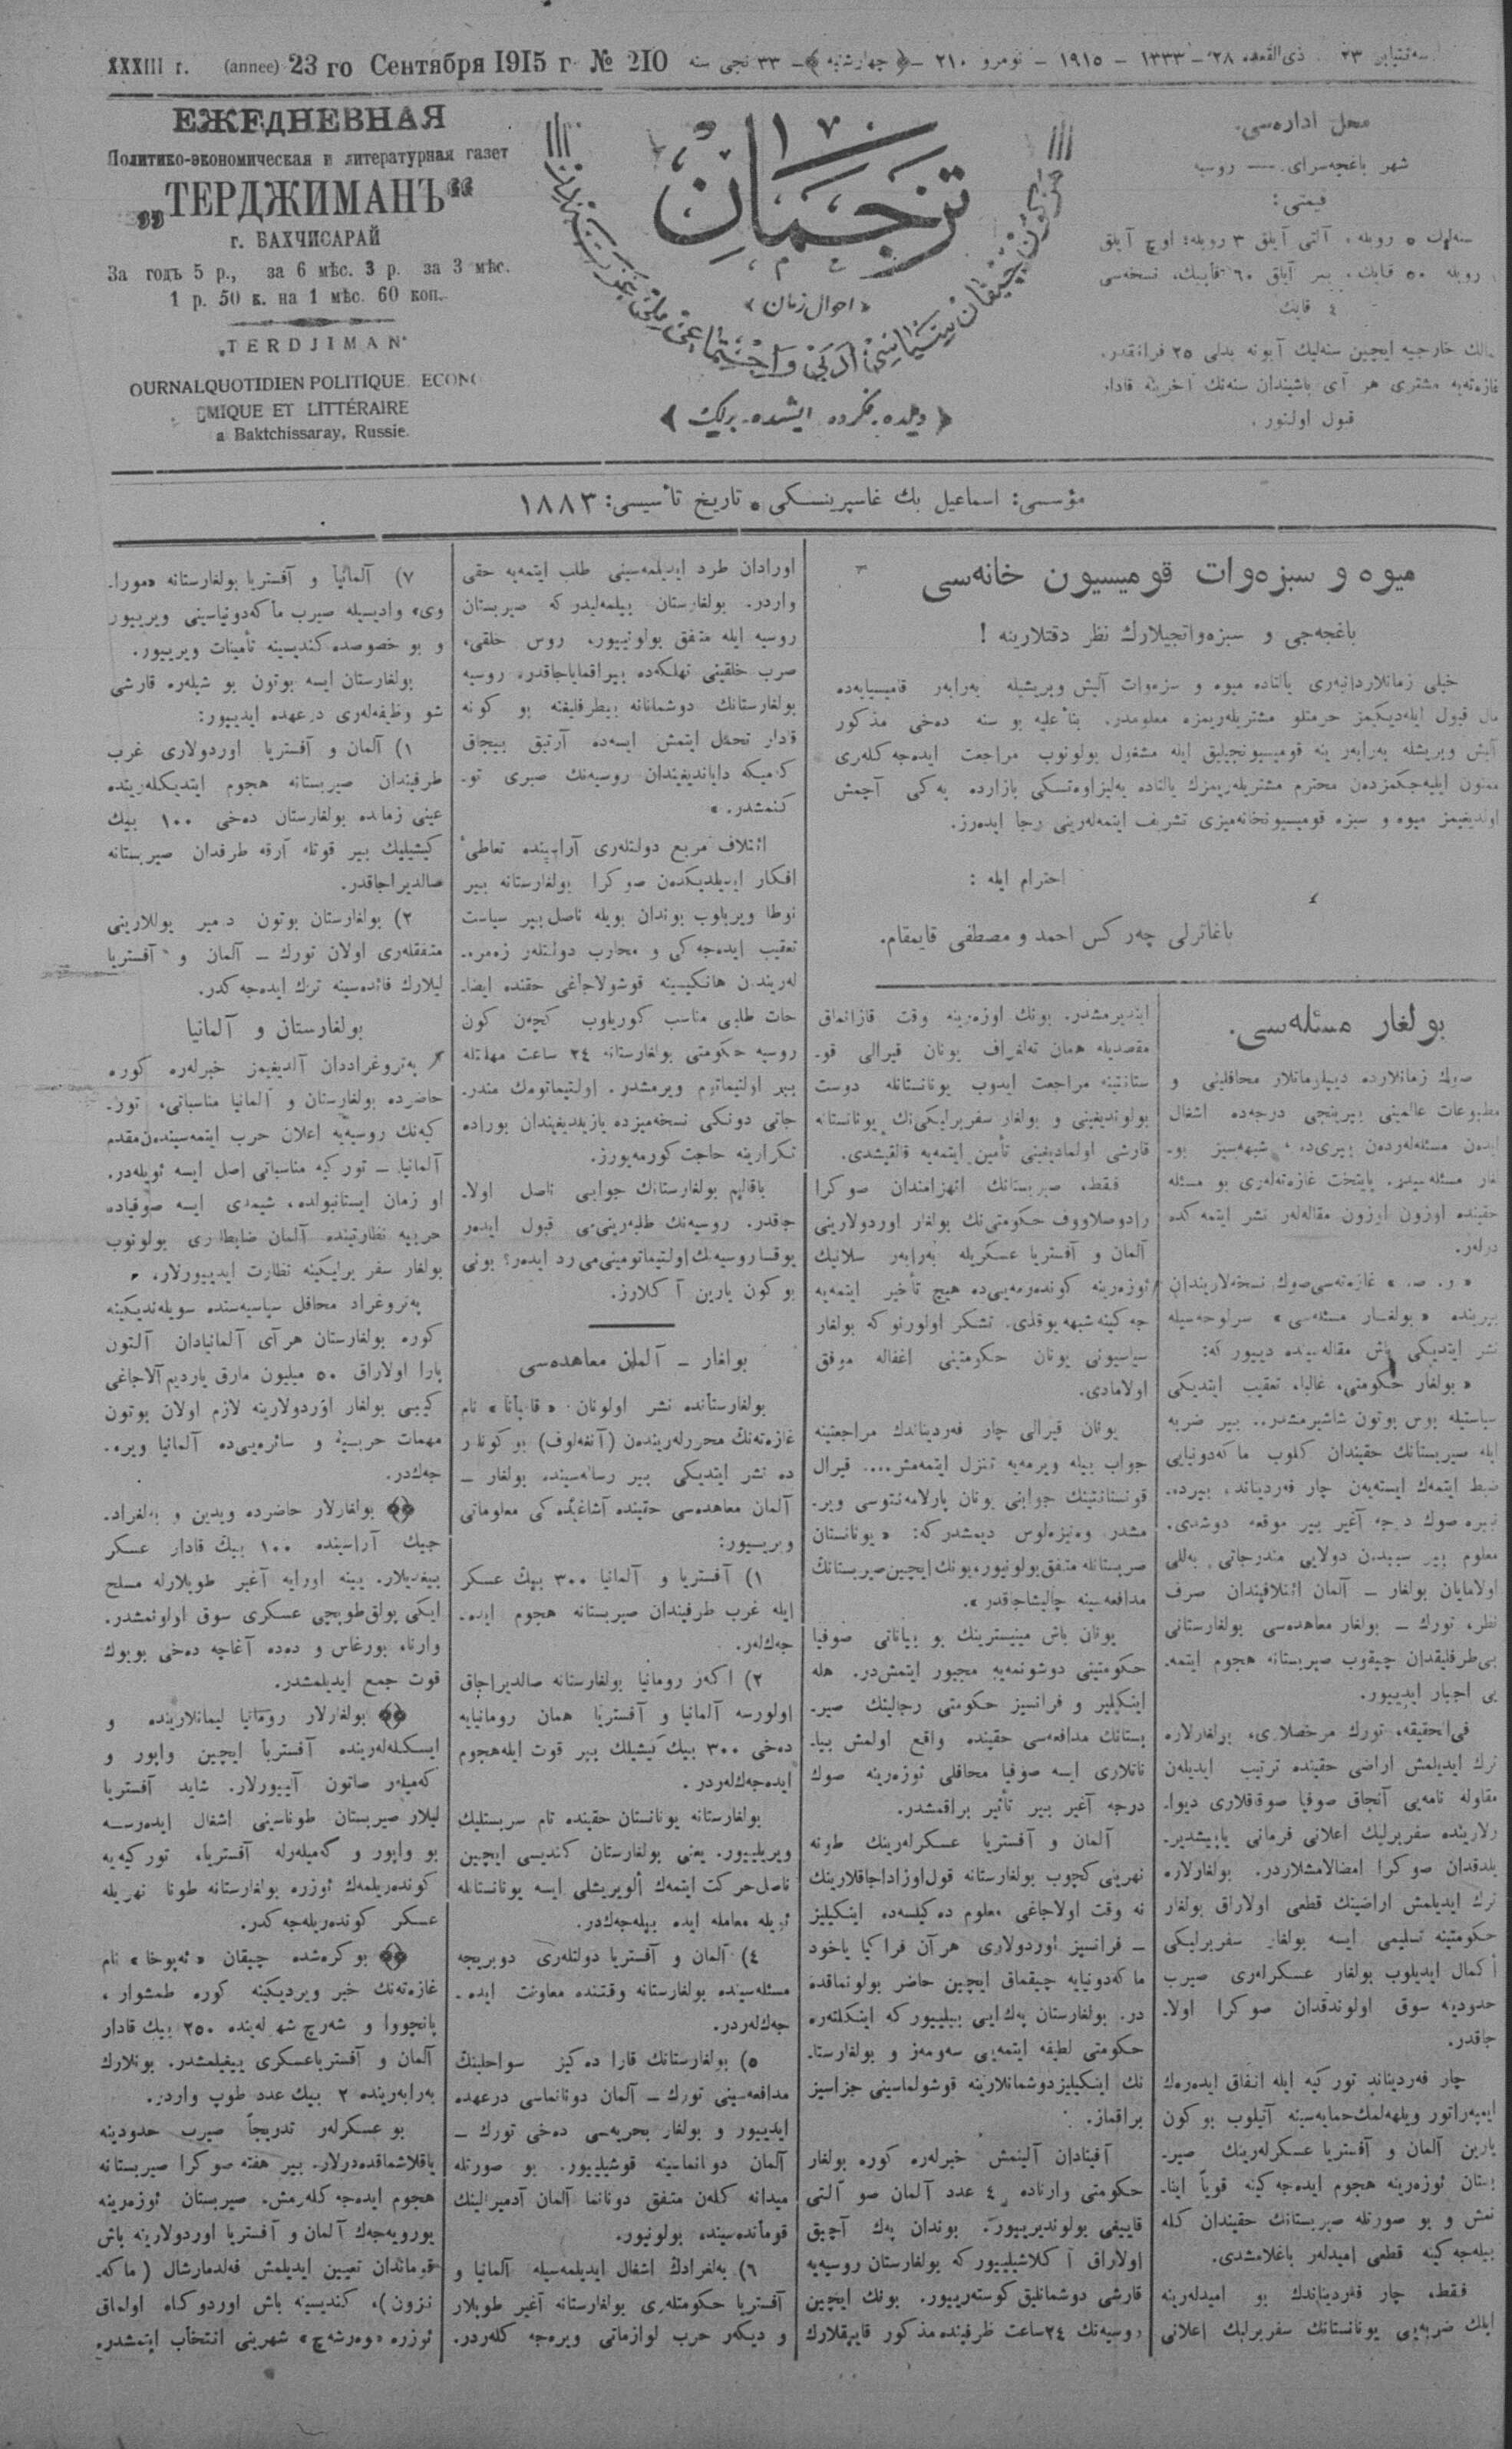 XXXIII г. (annee) 23 го Сентября 1915 г № 210
٢٣ ذی‌القعده ٢٨ – ١٣٣٣ – ١٩١٥ – نومرو ٢١٠ – ﴿ چهارشنبه ﴾ – ٣٣ نجی سنه
ЕЖЕДНЕВНАЯ
Политико-экономическая и литературная газет
„ТЕРДЖИМАНЪ“
г. БАХЧИСАРАЙ
За годъ 5 р., за 6 мѣс. 3 р. за 3 мѣс.
1 р. 50 к. на 1 мѣс. 60 коп.
„TERDJIMAN“
OURNALQUOTIDIEN POLITIQUE. ECONO
MIQUE ET LITTÉRAIRE
a Baktchissaray, Russie.
ترجمان
﴿ احوال زمان ﴾
﴿ دیلده، فکرده، ایشده، برلیك ﴾
محل اداره‌سی.
شهر باغچه‌سرای — روسیه
قیمتی:
سنه‌لك ٥ روبله، آلتی آیلق ٣ روبله؛ اوچ آیلق
روبله ٥٠ قاپك، بیر آیلق ٦٠ قاپیك، نسخه‌سی
٤ قاپك
ممالك خارجیه ایچین سنه‌لیك آبونه بدلی ٢٥ فرانقدر.
غازه‌ته‌یه مشتری هر آی باشیندان سنه‌نك آخرینه قادار
قبول اولنور.
مؤسسی: اسماعیل بك غاسپرینسکی ٭ تاریخ تأسیسی: ١٨٨٣
میوه و سبزه‌وات قومیسیون خانه‌سی
باغچه‌جی و سبزه‌واتجیلارك نظر دقتلارینه !
خیلی زمانلاردانبه‌ری یالتاده میوه و سبزه‌وات آلیش ویریشیله به‌رابه‌ر قامیسیایه‌ده
مال قبول ایله‌دیکمز حرمتلو مشتریله‌ریمزه معلومدر. بنأ علیه بو سنه دخی مذکور
آلیش ویریشله به‌رابه‌ر ینه قومیسیونجیلیق ایله مشغول بولونوب مراجعت ایده‌جه‌کله‌ری
ممنون ایلیه‌جکمزده‌ن محترم مشتریله‌ریمزك یالتاده یه‌لیزاوه‌تسکی بازارده یه‌کی آچمش
اولدیغیمز میوه و سبزه قومیسیونخانه‌میزی تشریف ایتمه‌له‌رینی رجا ایده‌رز.
احترام ایله :
باغاترلی چه‌رکس احمد و مصطفی قایمقام.
بولغار مسئله‌سی.
صوك زمانلارده دیپلوماتلار محافلینی و
مطبوعات عالمینی بیرینجی درجه‌ده اشغال
ایده‌ن مسئله‌له‌رده‌ن بیری‌ده، شبهه‌سیز بو-
لغار مسئله‌سیدر. پایتخت غازه‌ته‌له‌ری بو مسئله
حقینده اوزون اوزون مقاله‌له‌ر نشر ایتمه‌کده
درله‌ر.
« ر. ص. » غازه‌ته‌سی صوك نسخه‌لاریندان
بیرینده « بولغار مسئله‌سی » سرلوحه‌سیله
نشر ایتدیکی باش مقاله‌سینده دیییور که:
« بولغار حکومتی، غالبا، تعقیب ایتدیکی
سیاستیله بوس بوتون شاشیرمشدر.. بیر ضربه
ایله صیربستانك حقیندان کلوب ماکه‌دونیایی
ضبط ایتمه‌ك ایسته‌یه‌ن چار فه‌ردیناند، بیرده-
نبیره صوك درجه آغیر بیر موقعه دوشدی.
معلوم بیر سببدن دولایی مندرجاتی به‌للی
اولمایان بولغار – آلمان ائتلافیندان صرف
نظر، تورك – بولغار معاهده‌سی بولغارستانی
بی‌طرفلیقدان چیقوب صیربستانه هجوم ایتمه-
یی اجبار ایدییور.
فی‌الحقیقه، تورك مرخصلاری، بولغارلاره
ترك ایدیلمش اراضی حقینده ترتیب ایدیله‌ن
مقاوله نامه‌یی آنجاق صوفیا صوقاقلاری دیوا-
رلارینده سفربرلیك اعلانی فرمانی یاپیشدیر-
یلدقدان صوکرا امضالامشلاردر. بولغارلاره
ترك ایدیلمش اراضینك قطعی اولاراق بولغار
حکومتینه تسلیمی ایسه بولغار سفربرلیکی
اکمال ایدیلوب بولغار عسکرله‌ری صیرب
حدودیه سوق اولوندقدان صوکرا اولا-
جاقدر.
چار فه‌ردیناند تورکیه ایله اتفاق ایده‌ره‌ك
ایمپه‌راتور ویلهه‌لمك حمایه‌سینه آتیلوب بوکون
یارین آلمان و آفستریا عسکرله‌رینك صیر-
بستان ئوزه‌رینه هجوم ایده‌جه‌کینه قویاً اینا-
نمش و بو صورتله صیربستانك حقیندان کله
بیله‌جه‌کینه قطعی امیدلر باغلامشدی.
فقط، چار فه‌ردیناندك بو امیدله‌رینه
ایلك ضربه‌یی یونانستانك سفربرلیك اعلانی
ایندیرمشدر. بونك اوزه‌رینه وقت قازانماق
مقصدیله همان ته‌لغراف یونان قیرالی قو-
نستانتینه مراجعت ایدوب یونانستانله دوست
بولوندیغینی و بولغار سفربرلیکی‌نك یونانستانه
قارشی اولمادیغینی تأمین ایتمه‌یه قالقیشدی.
فقط، صیربستانك انهزامندان صوکرا
رادوصلاووف حکومتی‌نك بولغار اوردولارینی
آلمان و آفستریا عسکریله به‌رابه‌ر سلانیك
ئوزه‌رینه کونده‌رمه‌یی‌ده هیچ تأخیر ایتمه‌یه
جه‌کینه شبهه یوقدی. تشکر اولورنو که بولغار
سیاسیونی یونان حکومتینی اغفاله موفق
اولامادی.
یونان قیرالی چار فه‌ردیناندك مراجعتینه
جواب بیله ویرمه‌یه تنزل ایتمه‌مش.... قیرال
قونستانتینك جوابی یونان پارلامه‌نتوسی ویر-
مشدر. وه‌نیزه‌لوس دیمشدر که: « یونانستان
صربستانله متفق بولونیور، بونك ایچین صیربستانك
مدافعه‌سینه چالیشاجاقدر ».
یونان باش مینیسترینك بو بیاناتی صوفیا
حکومتینی دوشونمه‌یه مجبور ایتمش‌در. هله
اینکیلیز و فرانسیز حکومتی رجالینك صیر-
بستانك مدافعه‌سی حقینده واقع اولمش بیا-
ناتلاری ایسه صوفیا محافلی ئوزه‌رینه صوك
درجه آغیر بیر تأثیر براقمشدر.
آلمان و آفستریا عسکرله‌رینك طونه
نهرینی کچوب بولغارستانه قول اوزاداجاقلارینك
نه وقت اولاجاغی معلوم ده‌کیلسه‌ده اینکیلیز
– فرانسیز اوردولاری هر آن فراکیا یاخود
ماکه‌دونیایه چیقماق ایچین حاضر بولونماقده
در. بولغارستان پك ایی بیلییور که اینکلتره
حکومتی لطیفه ایتمه‌یی سه‌ومه‌ز و بولغارستا-
نك اینکیلیز دوشمانلارینه قوشولماسینی جزاسیز
براقماز.
آفینادان آلینمش خبرله‌ره کوره بولغار
حکومتی وارناده ٤ عدد آلمان صو آلتی
قاییغی بولوندیرییور. بوندان پك آچیق
اولاراق آکلاشیلییور که بولغارستان روسیه‌یه
قارشی دوشمانلیق کوسته‌رییور. بونك ایچین
روسیه‌نك ٢٤ ساعت ظرفینده مذکور قاییقلارك
اورادان طرد ایدیلمه‌سینی طلب ایتمه‌یه حقی
واردر. بولغارستان بیلمه‌لیدر که صیربستان
روسیه ایله متفق بولونییور، روس خلقی،
صرب خلقینی تهلکه‌ده بیراقمایاجاقدر، روسیه
بولغارستانك دوشمانانه بیطرفلیغنه بو کونه
قادار تحمل ایتمش ایسه‌ده آرتیق بیچاق
که‌میکه دایاندیغیندان روسیه‌نك صبری تو-
کنمشدر. »
ائتلاف مربع دولتله‌ری آراسینده تعاطیٔ
افکار ایدیلدیکدن صوکرا بولغارستانه بیر
نوطا ویریلوب بوندان بویله ناصل بیر سیاست
تعقیب ایده‌جه‌کی و محارب دولتلر زمره-
له‌ریندن هانکیسینه قوشولاجاغی حقنده ایضا-
حات طلبی مناسب کوریلوب کچه‌ن کون
روسیه حکومتی بولغارستانه ٢٤ ساعت مهلتله
بیر اولتیماتوم ویرمشدر. اولتیماتومك مندر-
جاتی دونکی نسخه‌میزده یازیلدیغیندان بوراده
تکرارینه حاجت کورمه‌یورز.
باقالیم بولغارستانك جوابی ناصل اولا-
جاقدر. روسیه‌نك طلبه‌رینی‌می قبول ایده‌ر
یوقسا روسیه‌نك اولتیماتومینی‌می رد ایده‌ر؟ بونی
بو کون یارین آکلارز.
بولغار – آلمان معاهده‌سی
بولغارستانده نشر اولونان « قامبانا » نام
غازه‌ته‌نك محررله‌رینده‌ن (آنغه‌لوف) بو کونلر
ده نشر ایتدیکی بیر رساله‌سینده بولغار –
آلمان معاهده‌سی حقینده آشاغیده‌کی معلوماتی
ویرییور:
١) آفستریا و آلمانیا ٣٠٠ بیك عسکر
ایله غرب طرفیندان صیربستانه هجوم ایده-
جه‌کله‌ر.
٢) اکه‌ر رومانیا بولغارستانه صالدیراجاق
اولورسه آلمانیا و آفستریا همان رومانیایه
دخی ٣٠٠ بیك کیشیلك بیر قوت ایله هجوم
ایده‌جه‌كله‌ردر.
بولغارستانه یونانستان حقینده تام سربستلیك
ویریلییور. یعنی بولغارستان کندیسی ایچین
ناصل حرکت ایتمه‌ك ألویریشلی ایسه یونانستانله
ئویله معامله ایده بیله‌جه‌ك‌در.
٤) آلمان و آفستریا دولتله‌ری دوبریجه
مسئله‌سینده بولغارستانه وقتنده معاونت ایده-
جه‌كله‌ردر.
٥) بولغارستانك قارا ده‌کیز سواحلینك
مدافعه‌سینی تورك – آلمان دونانماسی درعهده
ایدییور و بولغار بحریه‌سی دخی تورك –
آلمان دونانماسینه قوشیلییور. بو صورتله
میدانه کله‌ن متفق دونانما آلمان آدمیرالینك
قومانده‌سینده بولونیور.
٦) به‌لغرادك اشغال ایدیلمه‌سیله آلمانیا و
آفستریا حکومتله‌ری بولغارستانه آغیر طوپلار
و دیکه‌ر حرب لوازماتی ویره‌جه‌کله‌ردر.
٧) آلمانیا و آفستریا بولغارستانه «مورا-
وی» وادیسیله صیرب ماکه‌دونیاسینی ویرییور
و بو خصوصده کندیسینه تأمینات ویرییور.
بولغارستان ایسه بوتون بو شیله‌ره قارشی
شو وظیفه‌له‌ری درعهده ایدییور:
١) آلمان و آفستریا اوردولاری غرب
طرفیندان صیربستانه هجوم ایتدیکله‌رینده
عینی زمانده بولغارستان دخی ١٠٠ بیك
کیشیلیك بیر قوتله آرقه طرفدان صیربستانه
صالدیراجاقدر.
٢) بولغارستان بوتون دمیر یوللارینی
متفقله‌ری اولان تورك – آلمان و آفستریا
لیلارك فائده‌سینه ترك ایده‌جه‌کدر.
بولغارستان و آلمانیا
په‌تروغراددان آلدیغیمز خبرله‌ره کوره
حاضرده بولغارستان و آلمانیا مناسباتی، تور-
کیه‌نك روسیه‌یه اعلان حرب ایتمه‌سینده‌ن مقدم
آلمانیا – تورکیه مناسباتی اصل ایسه ئویله‌در.
او زمان ایستانبولده، شیمدی ایسه صوفیاده
حربیه نظارتینده آلمان ضابطلاری بولونوب
بولغار سفربرلیکینه نظارت ایدییورلار.
په‌تروغراد محافل سیاسیه‌سنده سویله‌ندیکینه
کوره بولغارستان هر آی آلمانیادان آلتون
پارا اولاراق ٥٠ میلیون مارق یاردیم آلاجاغی
کیبی بولغار اوردولارینه لازم اولان بوتون
مهمات حربیه و سائره‌یی‌ده آلمانیا ویره-
جه‌ك‌در.
﴿﴾ بولغارلار حاضرده ویدین و به‌لغراد-
جیك آراسینده ١٠٠ بیك قادار عسکر
ییغدیلار. یینه اورایه آغیر طوپلارله مسلح
ایکی پولق طوپجی عسکری سوق اولونمشدر.
وارنا، بورغاس و ده‌ده آغاچه دخی بویوك
قوت جمع ایدیلمشدر.
﴿﴾ بولغارلار رومانیا لیمانلارینده و
ایسکله‌له‌رینده آفستریا ایچین واپور و
که‌میله‌ر صاتون آلییورلار. شاید آفستریا
لیلار صیربستان طوناسینی اشغال ایده‌رسه
بو واپور و گمیله‌رله آفستریا، تورکیه‌یه
کونده‌ریلمه‌ك ئوزره بولغارستانه طونا نهریله
عسکر کونده‌ریله‌جه‌کدر.
﴿﴾ بوکره‌شده چیقان « ئه‌پوخا » نام
غازه‌ته‌نك خبر ویردیکینه کوره طمشوار،
پانچووا و شه‌رچ شهرله‌ینده ٢٥٠ بیك قادار
آلمان و آفستریا عسکری ییغیلمشدر. بونلارك
به‌رابه‌رینده ٢ بیك عدد طوپ واردر.
بو عسکرله‌ر تدریجاً صیرب حدودینه
یاقلاشماقده‌درلار. بیر هفته صوکرا صیربستانه
هجوم ایده‌جه‌کله‌رمش. صیربستان ئوزه‌رینه
یورویه‌جه‌ك آلمان و آفستریا اوردولارینه باش
قوماندان تعیین ایدیلمش فه‌لدمارشال (ماکه-
نزون)، کندیسینه باش اوردوکاه اولماق
ئوزره «وه‌رشه‌چ» شهرینی انتخاب ایتمشدر.